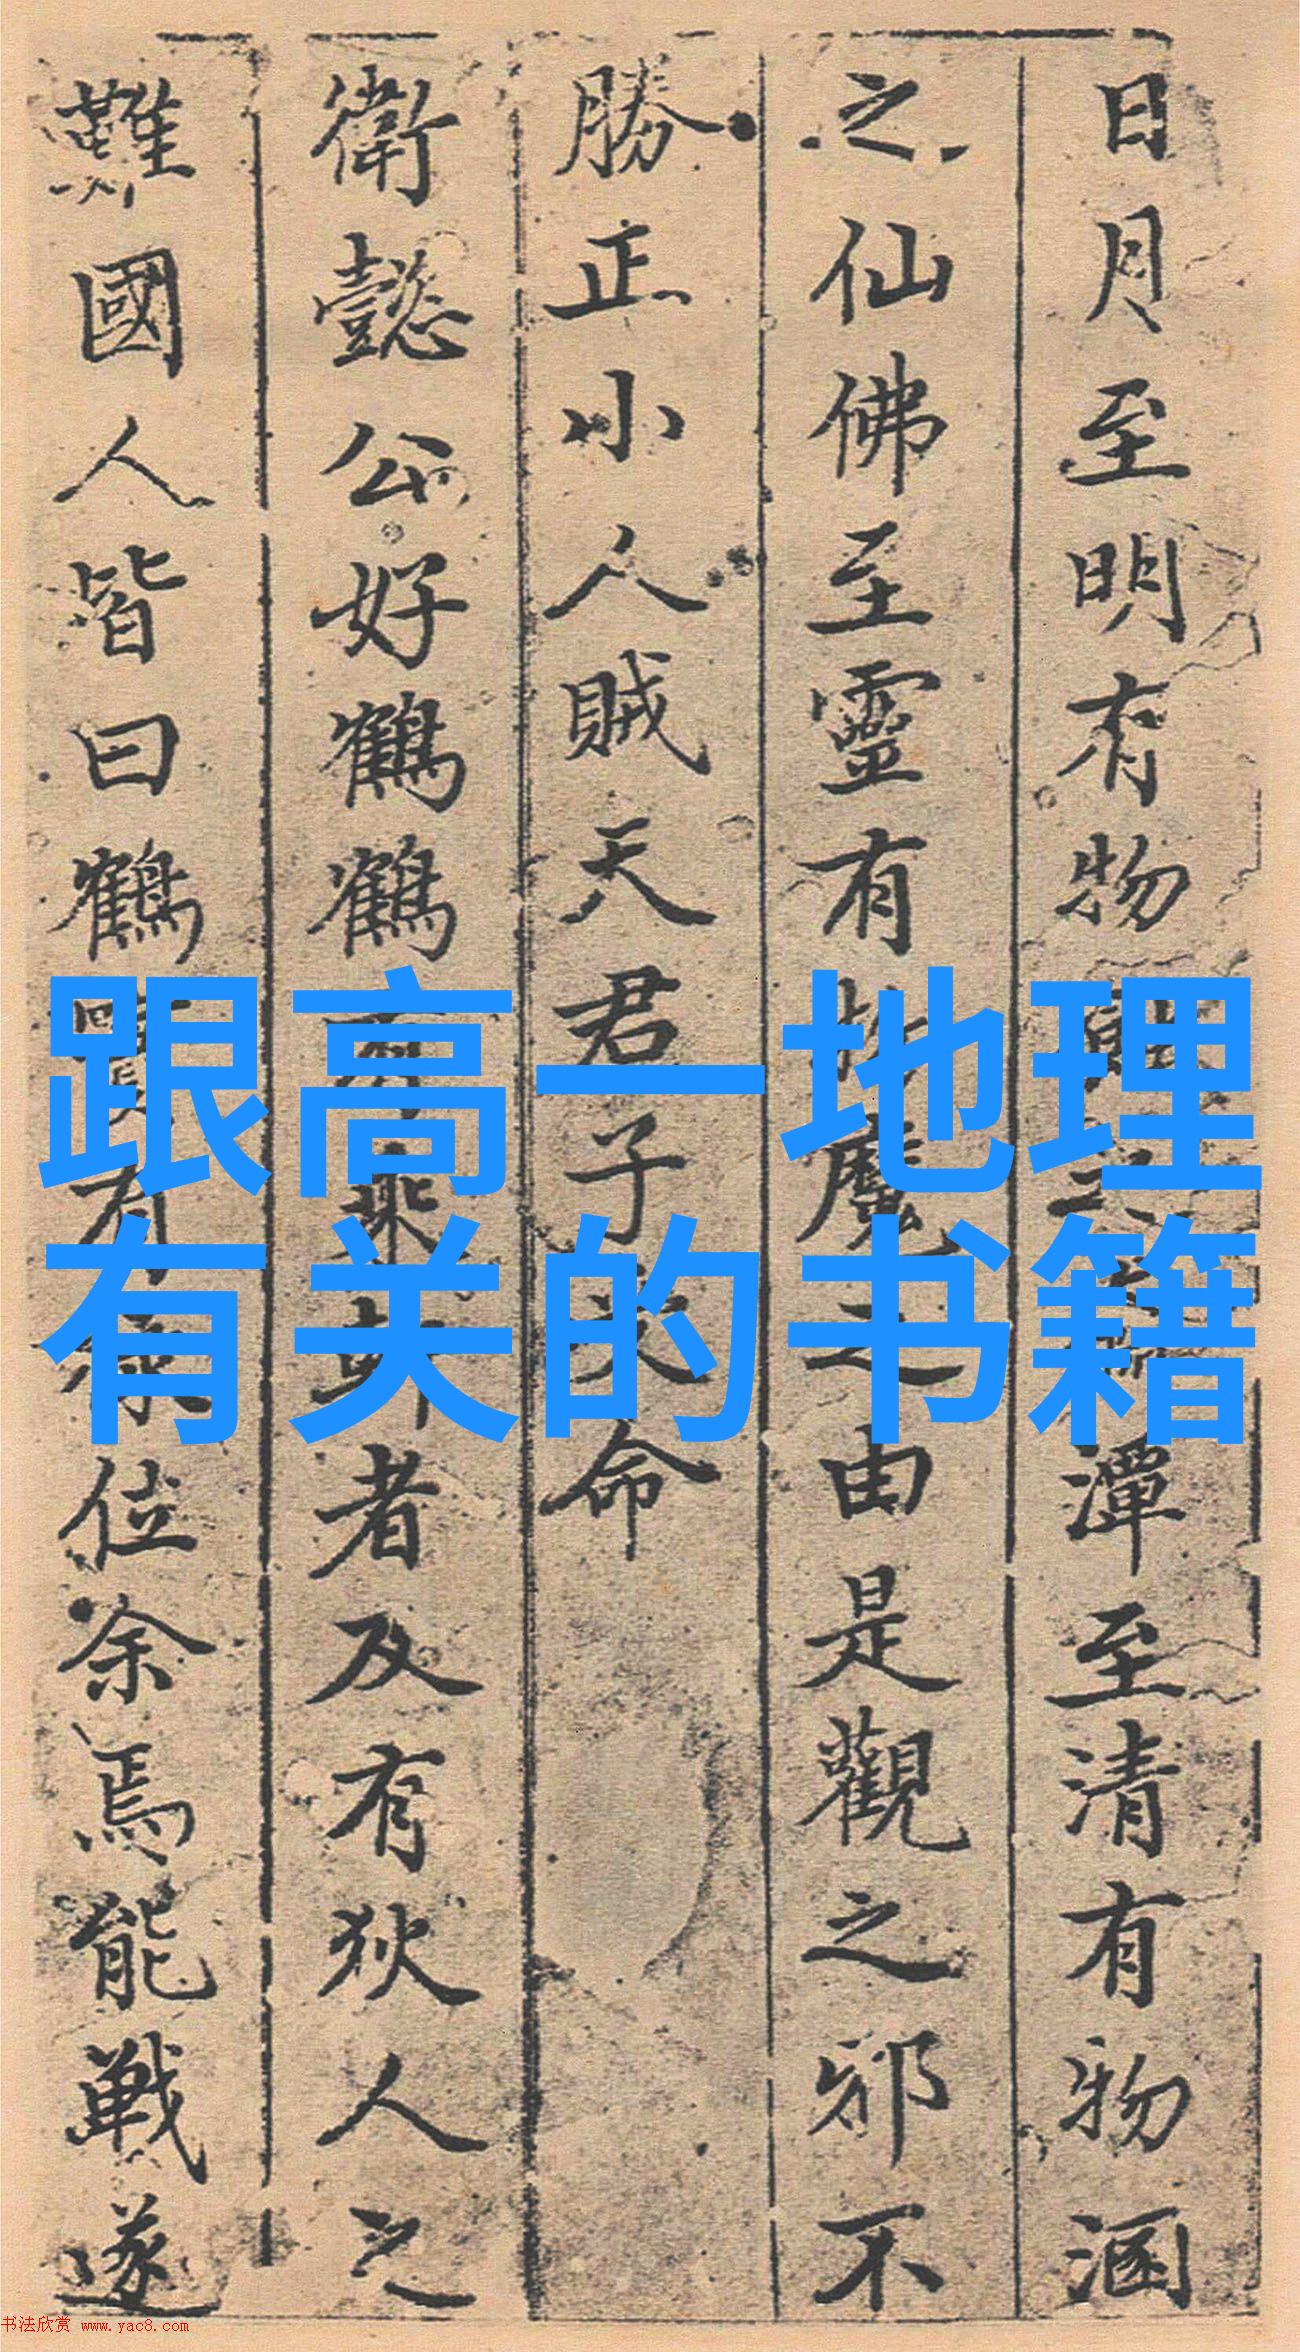 日月至明有物
潭至清有物涵
之仙佛至靈有
魔之由是觀之邪不
勝正小人賊天君子
命
衛懿公好鶴鶴
者及有狄人之
難國人皆曰鶴
位余焉能戰遂
跟高一地理
有关的书籍
书法欣赏 www.yac8.com